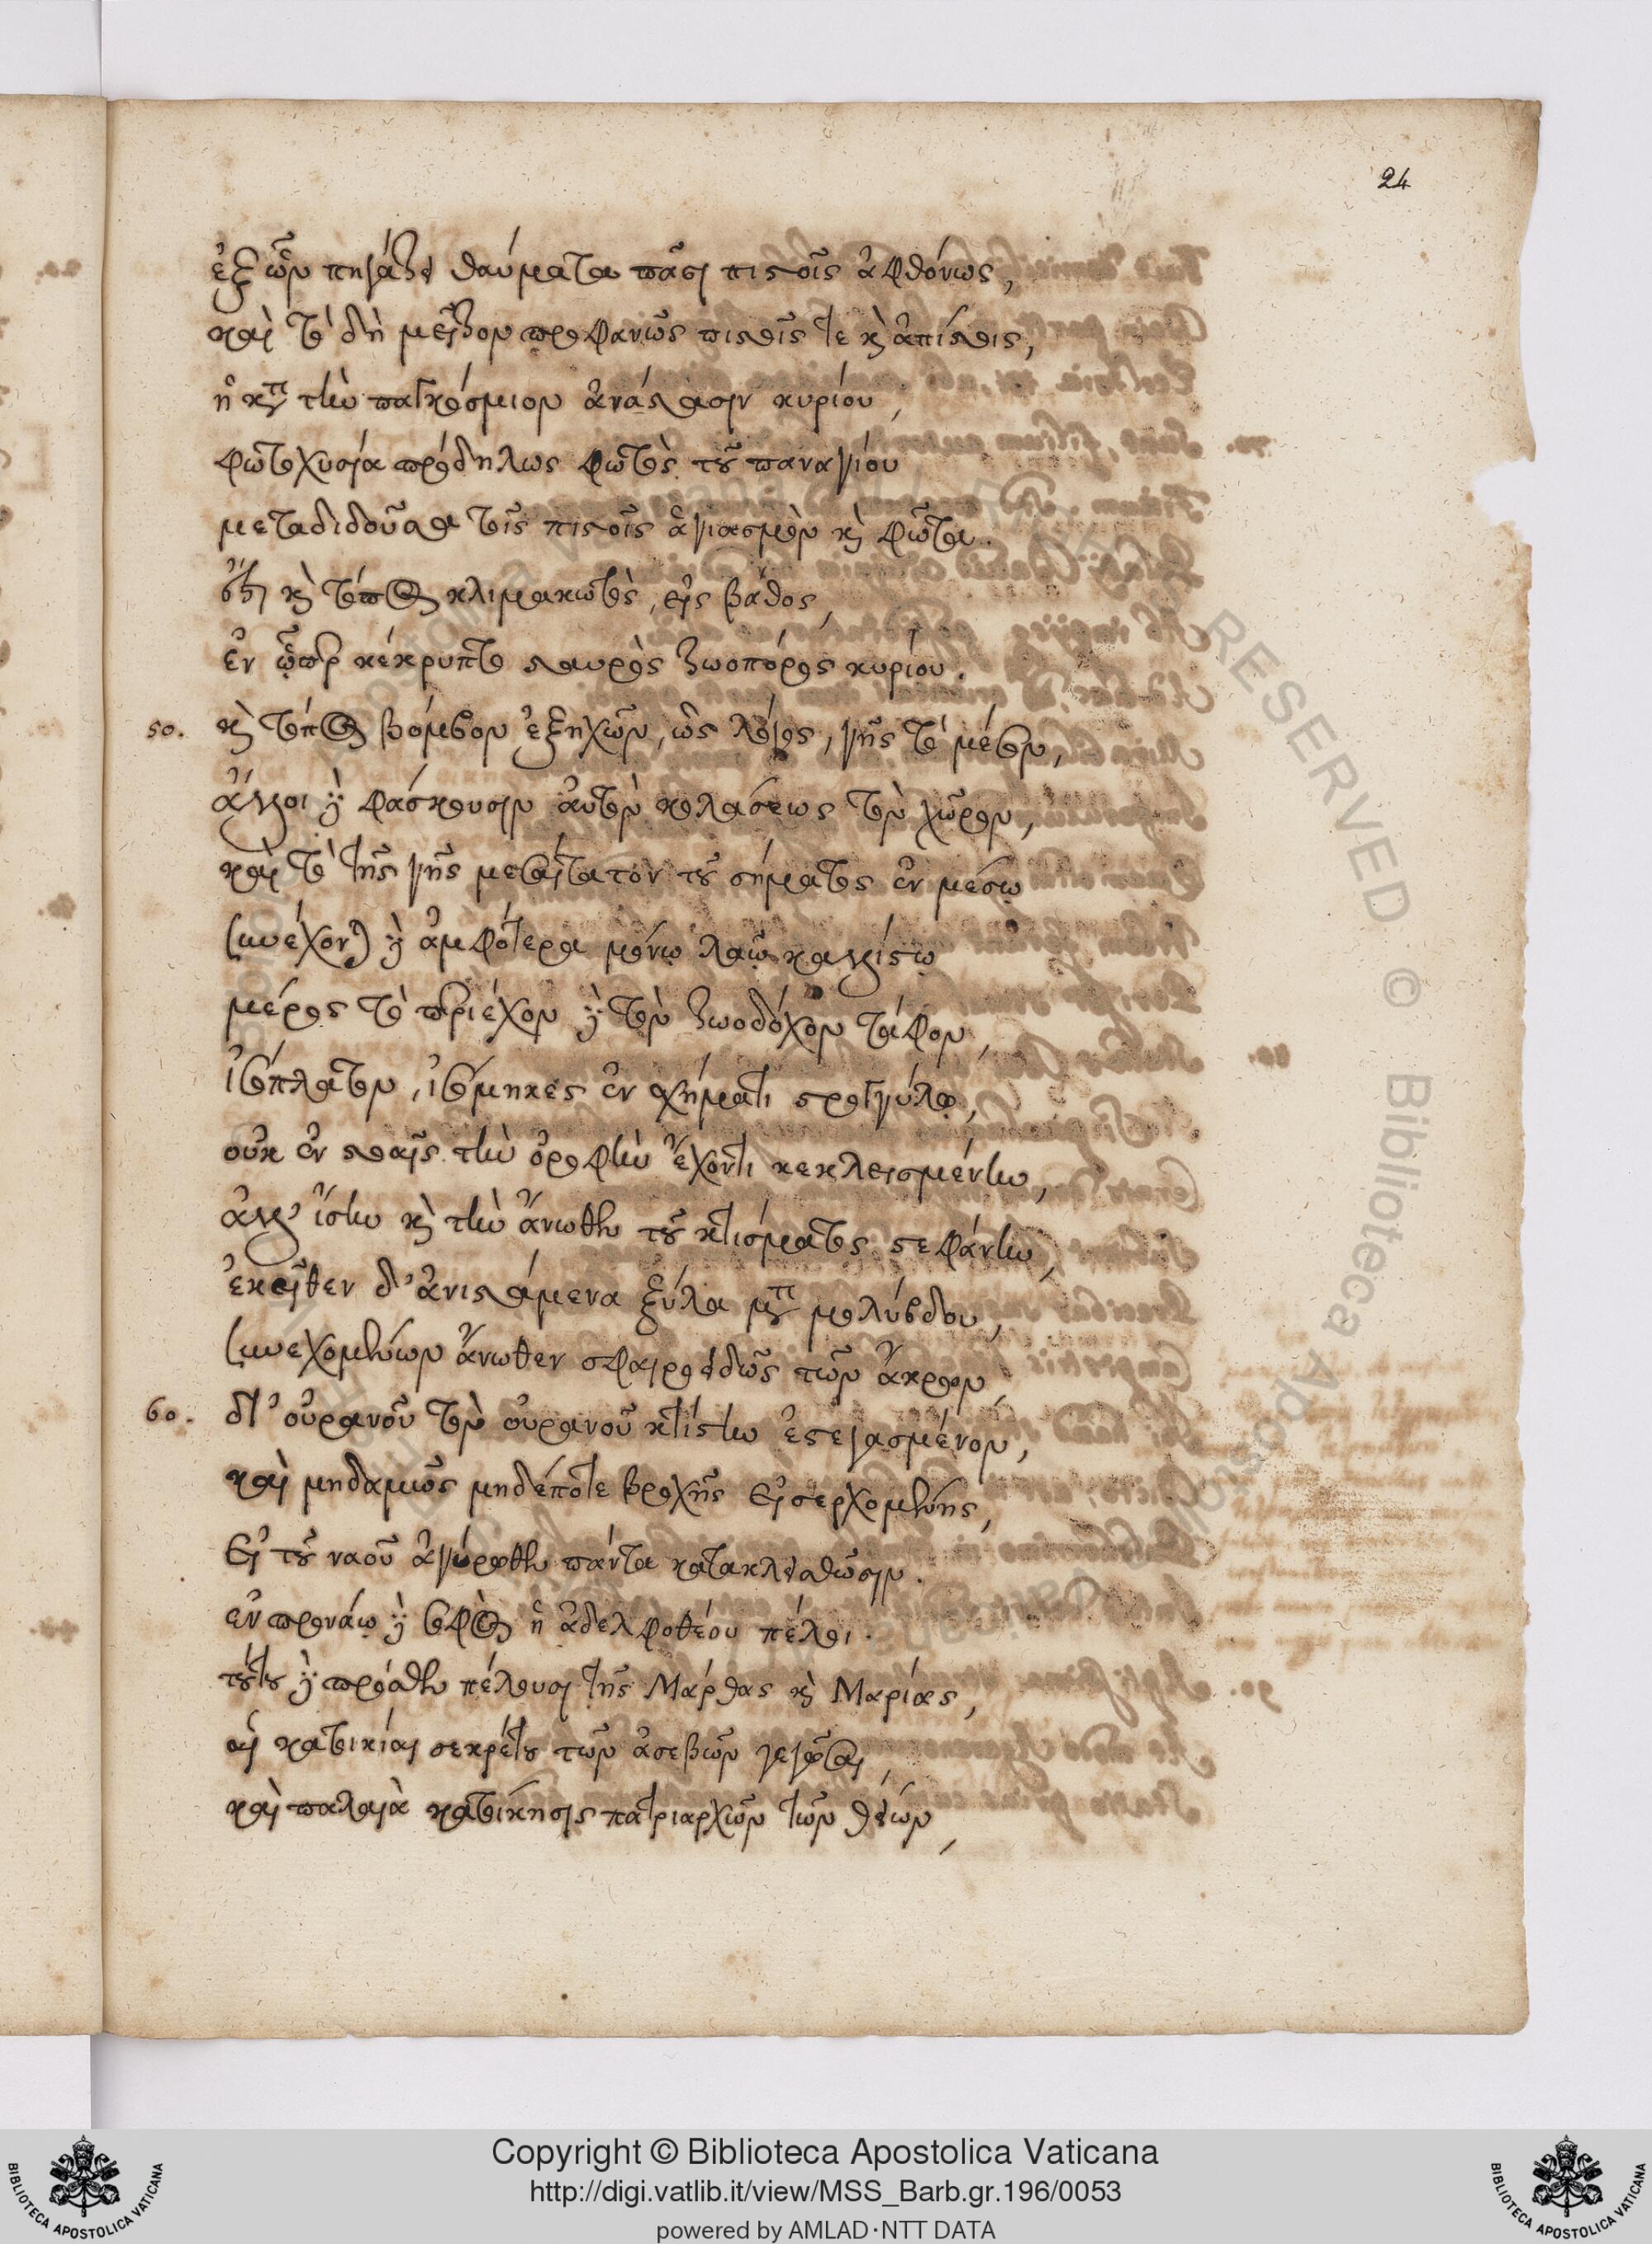 24
ἐξ ὧν πηγάζει θαύματα πᾶσι πιστοῖς ἀφθόνως,
καὶ τὸ δὴ μεῖζον προφανῶς πιστοῖς τε κὶ ἀπίστοις,
ἡ κατὰ τὴν παγκόσμιον ἀνάστασιν κυρίου,
φωτοχυσία πρόδηλως φωτὸς τοῦ παναγίου
μεταδιδοῦσα τοῖς πιστοῖς ἁγιασμὸν κὶ φῶτα.
ἔτι κὶ τόπος κλιμακωτὸς, εἰς βάθος,
ἐν ᾧπερ κέκρυπτο σταυρὸς ζωοπόρος κυρίου.
50. κὶ τόπος βόμβον ἐξηχῶν, ὡς λόγος, γῆς τὸ μέσον,
ἄλλοι δὲ φάσκουσιν αὐτὸν κολάσεως τὸν χῶρον,
καὶ τὸ τῆς γῆς μεσαίτατον τοῦ σήματος ἐν μέσῳ
συνέχονται δὲ ἀμφότερα μόνῳ λαῷ καλλίστῳ
μέρος τὸ περιέχον δὲ τὸν ζωοδόχον τάφον,
ἰσόπλατον, ἰσόμηκες ἐν σχήματι στρογγύλῳ,
οὐκ ἐν στοαῖς τὴν ὀροφὴν ἔχοντι κεκλεισμένην,
ἀλλ' ἴσην κὶ τὴν ἄνωθεν τοῦ κτίσματος στεφάνην,
ἐκεῖθεν δ' ἀνιστάμενα ξύλα μετὰ μολύβδου,
συνεχομένων ἄνωθεν σφαιροειδῶς τῶν ἄκρων,
60. δι' οὐρανοῦ τὸν οὐρανοῦ κτίστην ἐστεγασμένον,
καὶ μηδαμῶς μηδέποτε βροχῆς εἰσερχομένης,
εἰ τοῦ ναοῦ ἀγύρωθεν πάντα κατακλεισθῶσιν.
ἐν προνάῳ δὲ σορὸς ἡ ἀδελφοθέου πέλοι.
τούτου δὲ πρόσθεν πέλουσι τῆς Μάρθας κὶ Μαρίας,
αἱ κατοικίαι σεκρέτου τῶν ἀσεβῶν γεγῶσαι,
καὶ παλαιὰ κατοίκησις πατριαρχῶν τῶν θείων,
RESERVED © Biblioteca Apostolica Vaticana
Copyright © Biblioteca Apostolica Vaticana
http://digi.vatlib.it/view/MSS_Barb.gr.196/0053
powered by AMLAD·NTT DATA
BIBLIOTECA APOSTOLICA VATICANA
BIBLIOTECA APOSTOLICA VATICANA